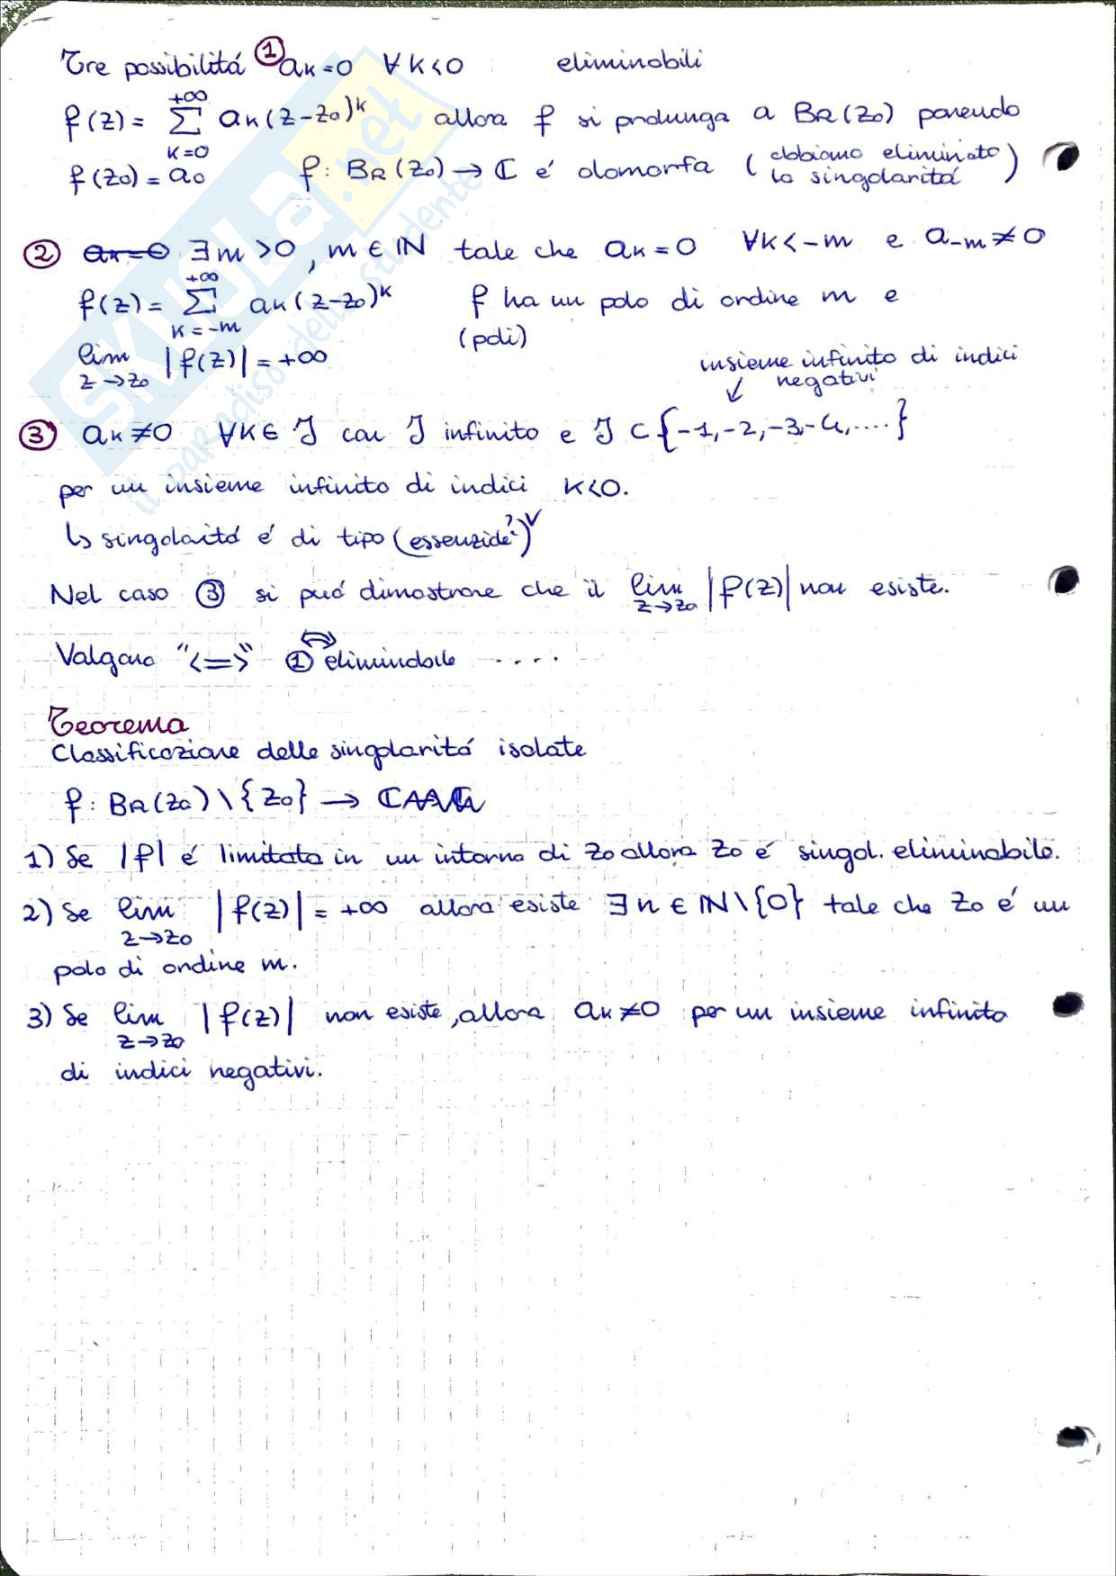 Tre possibilitá ① aₖ=0 ∀k<0 eliminabili
f(z) = Σ_{k=0}^{+∞} aₖ(z-z₀)^k allora f si prolunga a B_R(z₀) ponendo
f(z₀)=a₀ f: B_R(z₀) → ℂ é olomorfa (abbiamo eliminato la singolaritá)
② ~~aₖ=0~~ ∃m>0, m∈ℕ tale che aₖ=0 ∀k<-m e a₋ₘ≠0
f(z) = Σ_{k=-m}^{+∞} aₖ(z-z₀)^k f ha un polo di ordine m e
(poli)
lim_{z→z₀} |f(z)| = +∞
insieme infinito di indici
↙ negativi
③ aₖ≠0 ∀k∈J con J infinito e J ⊂ {-1,-2,-3,-4,....}
per un insieme infinito di indici k<0.
↳ singolaritá é di tipo (essenziale?)✓
Nel caso ③ si puó dimostrare che il lim_{z→z₀} |f(z)| non esiste.
Valgono "<=>" ① ⇔ eliminabile ....
Teorema
Classificazione delle singolaritá isolate
f: B_R(z₀)\{z₀} → ℂ
1) Se |f| é limitata in un intorno di z₀ allora z₀ é singol. eliminabile.
2) Se lim_{z→z₀} |f(z)| = +∞ allora esiste ∃n∈ℕ\{0} tale che z₀ é un
polo di ordine m.
3) Se lim_{z→z₀} |f(z)| non esiste, allora aₖ≠0 per un insieme infinito
di indici negativi.
SKUOLA.net
il paradiso dello studente